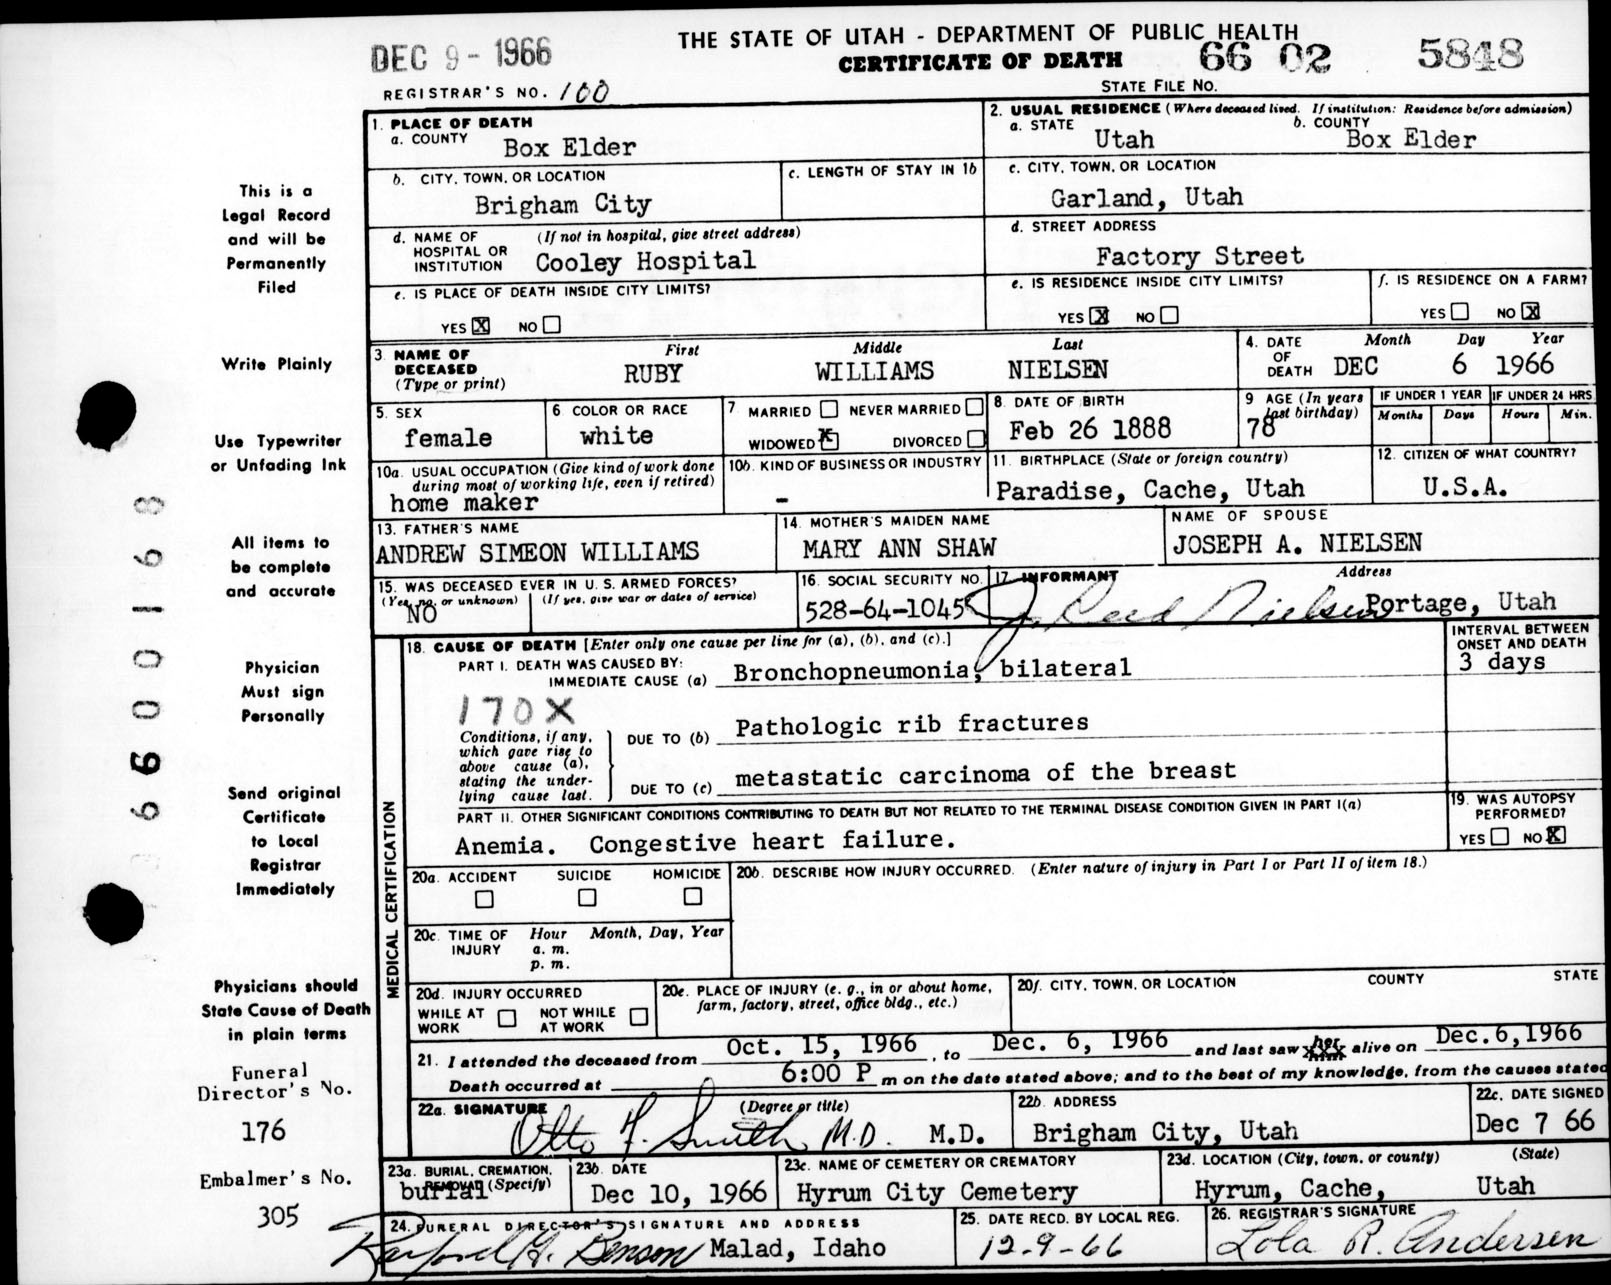 DEC 9 - 1966
THE STATE OF UTAH - DEPARTMENT OF PUBLIC HEALTH
CERTIFICATE OF DEATH
66 02 5848
REGISTRAR'S NO. 100
STATE FILE NO.
1. PLACE OF DEATH
a. COUNTY
Box Elder
2. USUAL RESIDENCE (Where deceased lived. If institution: Residence before admission)
a. STATE
Utah
b. COUNTY
Box Elder
b. CITY, TOWN, OR LOCATION
Brigham City
c. LENGTH OF STAY IN 1b
c. CITY, TOWN, OR LOCATION
Garland, Utah
d. NAME OF HOSPITAL OR INSTITUTION
(If not in hospital, give street address)
Cooley Hospital
d. STREET ADDRESS
Factory Street
e. IS PLACE OF DEATH INSIDE CITY LIMITS?
YES X NO
e. IS RESIDENCE INSIDE CITY LIMITS?
YES X NO
f. IS RESIDENCE ON A FARM?
YES NO X
3. NAME OF DECEASED
(Type or print)
First Middle Last
RUBY WILLIAMS NIELSEN
4. DATE OF DEATH
Month Day Year
DEC 6 1966
5. SEX
female
6. COLOR OR RACE
white
7. MARRIED NEVER MARRIED
WIDOWED X DIVORCED
8. DATE OF BIRTH
Feb 26 1888
9. AGE (In years last birthday)
78
IF UNDER 1 YEAR
Months Days
IF UNDER 24 HRS
Hours Min.
10a. USUAL OCCUPATION (Give kind of work done during most of working life, even if retired)
home maker
10b. KIND OF BUSINESS OR INDUSTRY
-
11. BIRTHPLACE (State or foreign country)
Paradise, Cache, Utah
12. CITIZEN OF WHAT COUNTRY?
U.S.A.
13. FATHER'S NAME
ANDREW SIMEON WILLIAMS
14. MOTHER'S MAIDEN NAME
MARY ANN SHAW
NAME OF SPOUSE
JOSEPH A. NIELSEN
15. WAS DECEASED EVER IN U. S. ARMED FORCES?
(Yes, no, or unknown) (If yes, give war or dates of service)
NO
16. SOCIAL SECURITY NO.
528-64-1045
17. INFORMANT Address
J. Reed Nielsen Portage, Utah
18. CAUSE OF DEATH [Enter only one cause per line for (a), (b), and (c).]
PART I. DEATH WAS CAUSED BY:
IMMEDIATE CAUSE (a) Bronchopneumonia, bilateral
INTERVAL BETWEEN ONSET AND DEATH
3 days
170X
Conditions, if any, which gave rise to above cause (a), stating the underlying cause last.
DUE TO (b) Pathologic rib fractures
DUE TO (c) metastatic carcinoma of the breast
PART II. OTHER SIGNIFICANT CONDITIONS CONTRIBUTING TO DEATH BUT NOT RELATED TO THE TERMINAL DISEASE CONDITION GIVEN IN PART I(a)
Anemia. Congestive heart failure.
19. WAS AUTOPSY PERFORMED?
YES NO X
20a. ACCIDENT SUICIDE HOMICIDE
20b. DESCRIBE HOW INJURY OCCURRED. (Enter nature of injury in Part I or Part II of item 18.)
20c. TIME OF INJURY
Hour Month, Day, Year
a. m.
p. m.
20d. INJURY OCCURRED
WHILE AT WORK NOT WHILE AT WORK
20e. PLACE OF INJURY (e. g., in or about home, farm, factory, street, office bldg., etc.)
20f. CITY, TOWN, OR LOCATION COUNTY STATE
21. I attended the deceased from Oct. 15, 1966, to Dec. 6, 1966 and last saw her him alive on Dec.6,1966
Death occurred at 6:00 P m on the date stated above; and to the best of my knowledge, from the causes stated
22a. SIGNATURE (Degree or title)
Otto F. Smith M.D. M.D.
22b. ADDRESS
Brigham City, Utah
22c. DATE SIGNED
Dec 7 66
23a. BURIAL, CREMATION, REMOVAL (Specify)
burial
23b. DATE
Dec 10, 1966
23c. NAME OF CEMETERY OR CREMATORY
Hyrum City Cemetery
23d. LOCATION (City, town, or county) (State)
Hyrum, Cache, Utah
24. FUNERAL DIRECTOR'S SIGNATURE AND ADDRESS
Rayford G. Benson Malad, Idaho
25. DATE RECD. BY LOCAL REG.
12-9-66
26. REGISTRAR'S SIGNATURE
Lola R. Andersen
MEDICAL CERTIFICATION
This is a
Legal Record
and will be
Permanently
Filed
Write Plainly
Use Typewriter
or Unfading Ink
All items to
be complete
and accurate
Physician
Must sign
Personally
Send original
Certificate
to Local
Registrar
Immediately
Physicians should
State Cause of Death
in plain terms
Funeral
Director's No.
176
Embalmer's No.
305
6600168